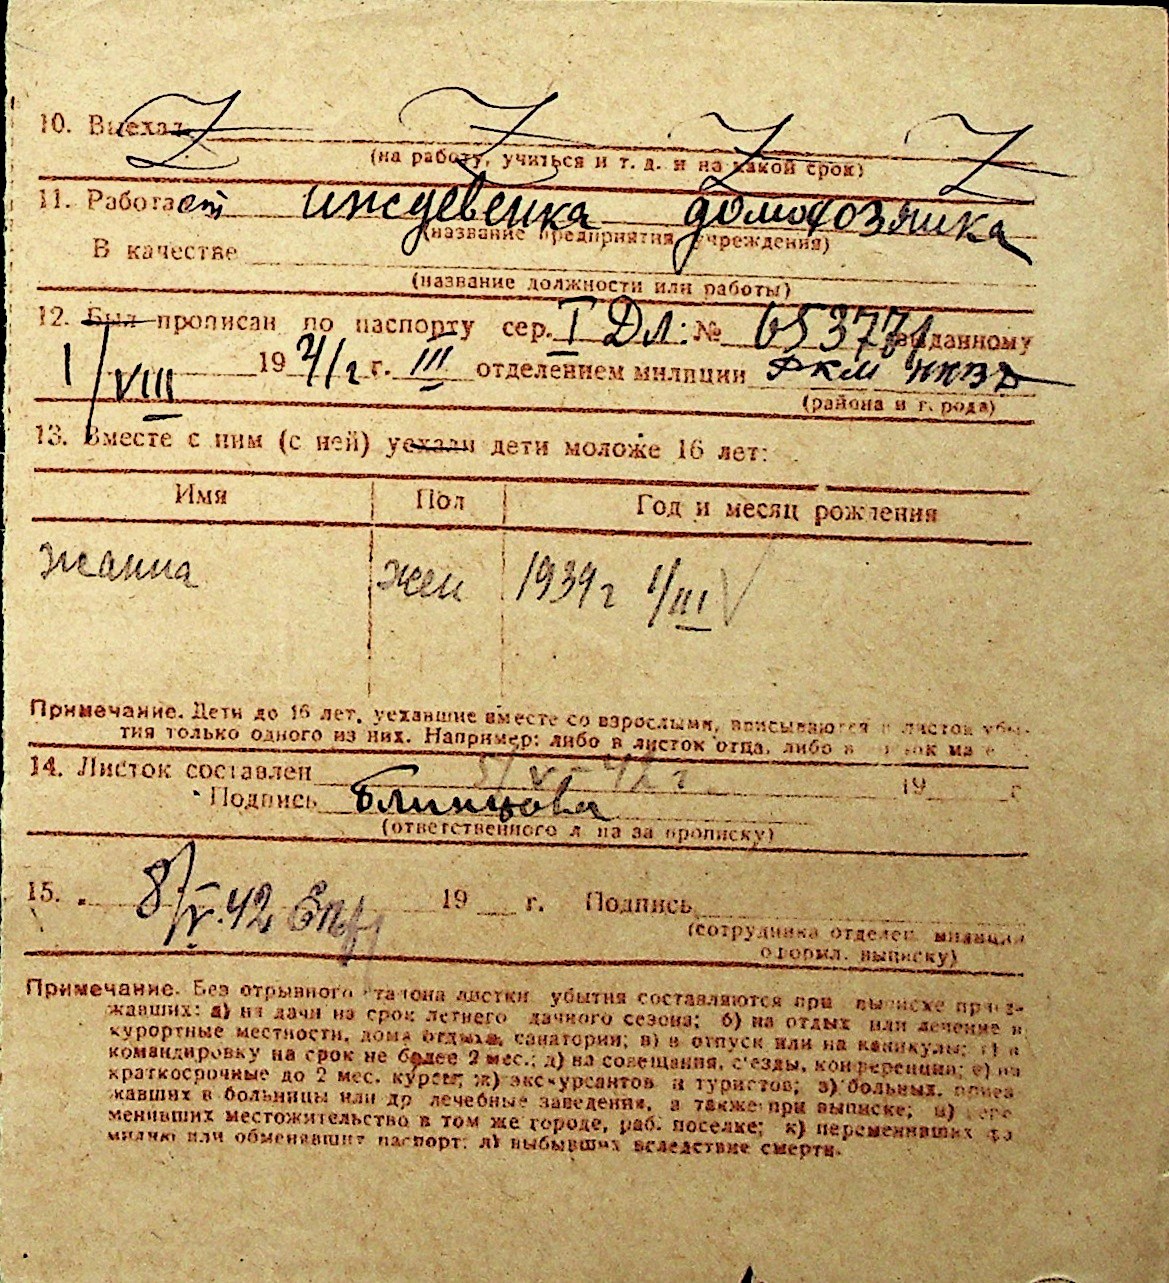 10. Выехал Z Z Z Z
(на работу, учиться и т. д. и на какой срок)
11. Работает иждевенка домохозяика
(название предприятия учреждения)
В качестве
(название должности или работы)
12. Был прописан по паспорту сер. I ДЛ: № выданному
1/VIII 19 41 г. III отделением милиции РКМ НКВД
(района и города)
13. Вместе с ним (с ней) уехали дети моложе 16 лет:
Имя Пол Год и месяц рождения
Жанна жен 1939 г 1/III V
Примечание. Дети до 16 лет, уехавшие вместе со взрослыми, вписываются в листок убы-
тия только одного из них. Например: либо в листок отца, либо в
14. Листок составлен 5/V-42 г. 19 г
Подпись Блинцова
(ответственного лица за прописку)
15. 8/V.42 19 г. Подпись
(сотрудника отделен. милиции
оформл. выписку)
Примечание. Без отрывного талона листки убытия составляются при выписке приез-
жавших: а) на дачи на срок летнего дачного сезона; б) на отдых или лечение в
курортные местности, дома отдыха, санатории; в) в отпуск или на каникулы; г) в
командировку на срок не более 2 мес.; д) на совещания, съезды, конференции; е) на
краткосрочные до 2 мес. курсы; ж) экскурсантов и туристов; з) больных, приез
жавших в больницы или др лечебные заведения, а также при выписке; и) пере
менивших местожительство в том же городе, раб. поселке; к) переменивших фа
милию или обменявших паспорт; л) выбывших вследствие смерти.